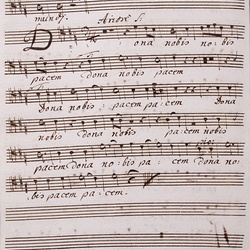 mundi.
Dona nobis nobis
pacem dona nobis pacem
dona nobis pacem dona
nobis dona nobis pacem nobis
pacem dona no=bis pa=cem dona no=
bis pacem pa=cem.